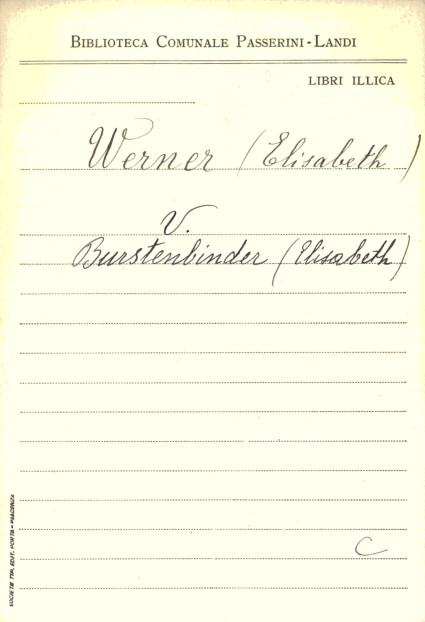 BIBLIOTECA COMUNALE PASSERINI-LANDI
LIBRI ILLICA
Werner (Elisabeth)
V.
Burstenbinder (Elisabeth)
C
SOCIETÀ TIP. EDIT. PORTA - PIACENZA